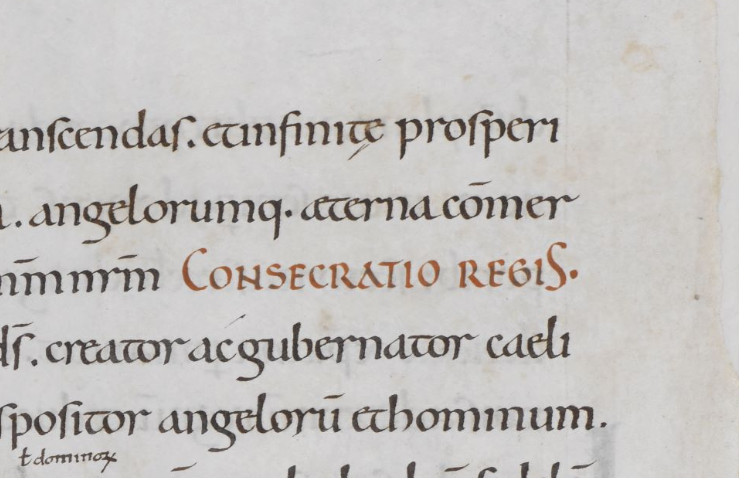 anscendas. et infinitę prosperi
. angelorumq. æterna com̄er
nr̄m CONSECRATIO REGIS.
ds̄. creator ac gubernator caeli
spositor angelorū et hominum.
ł dominoꝝ